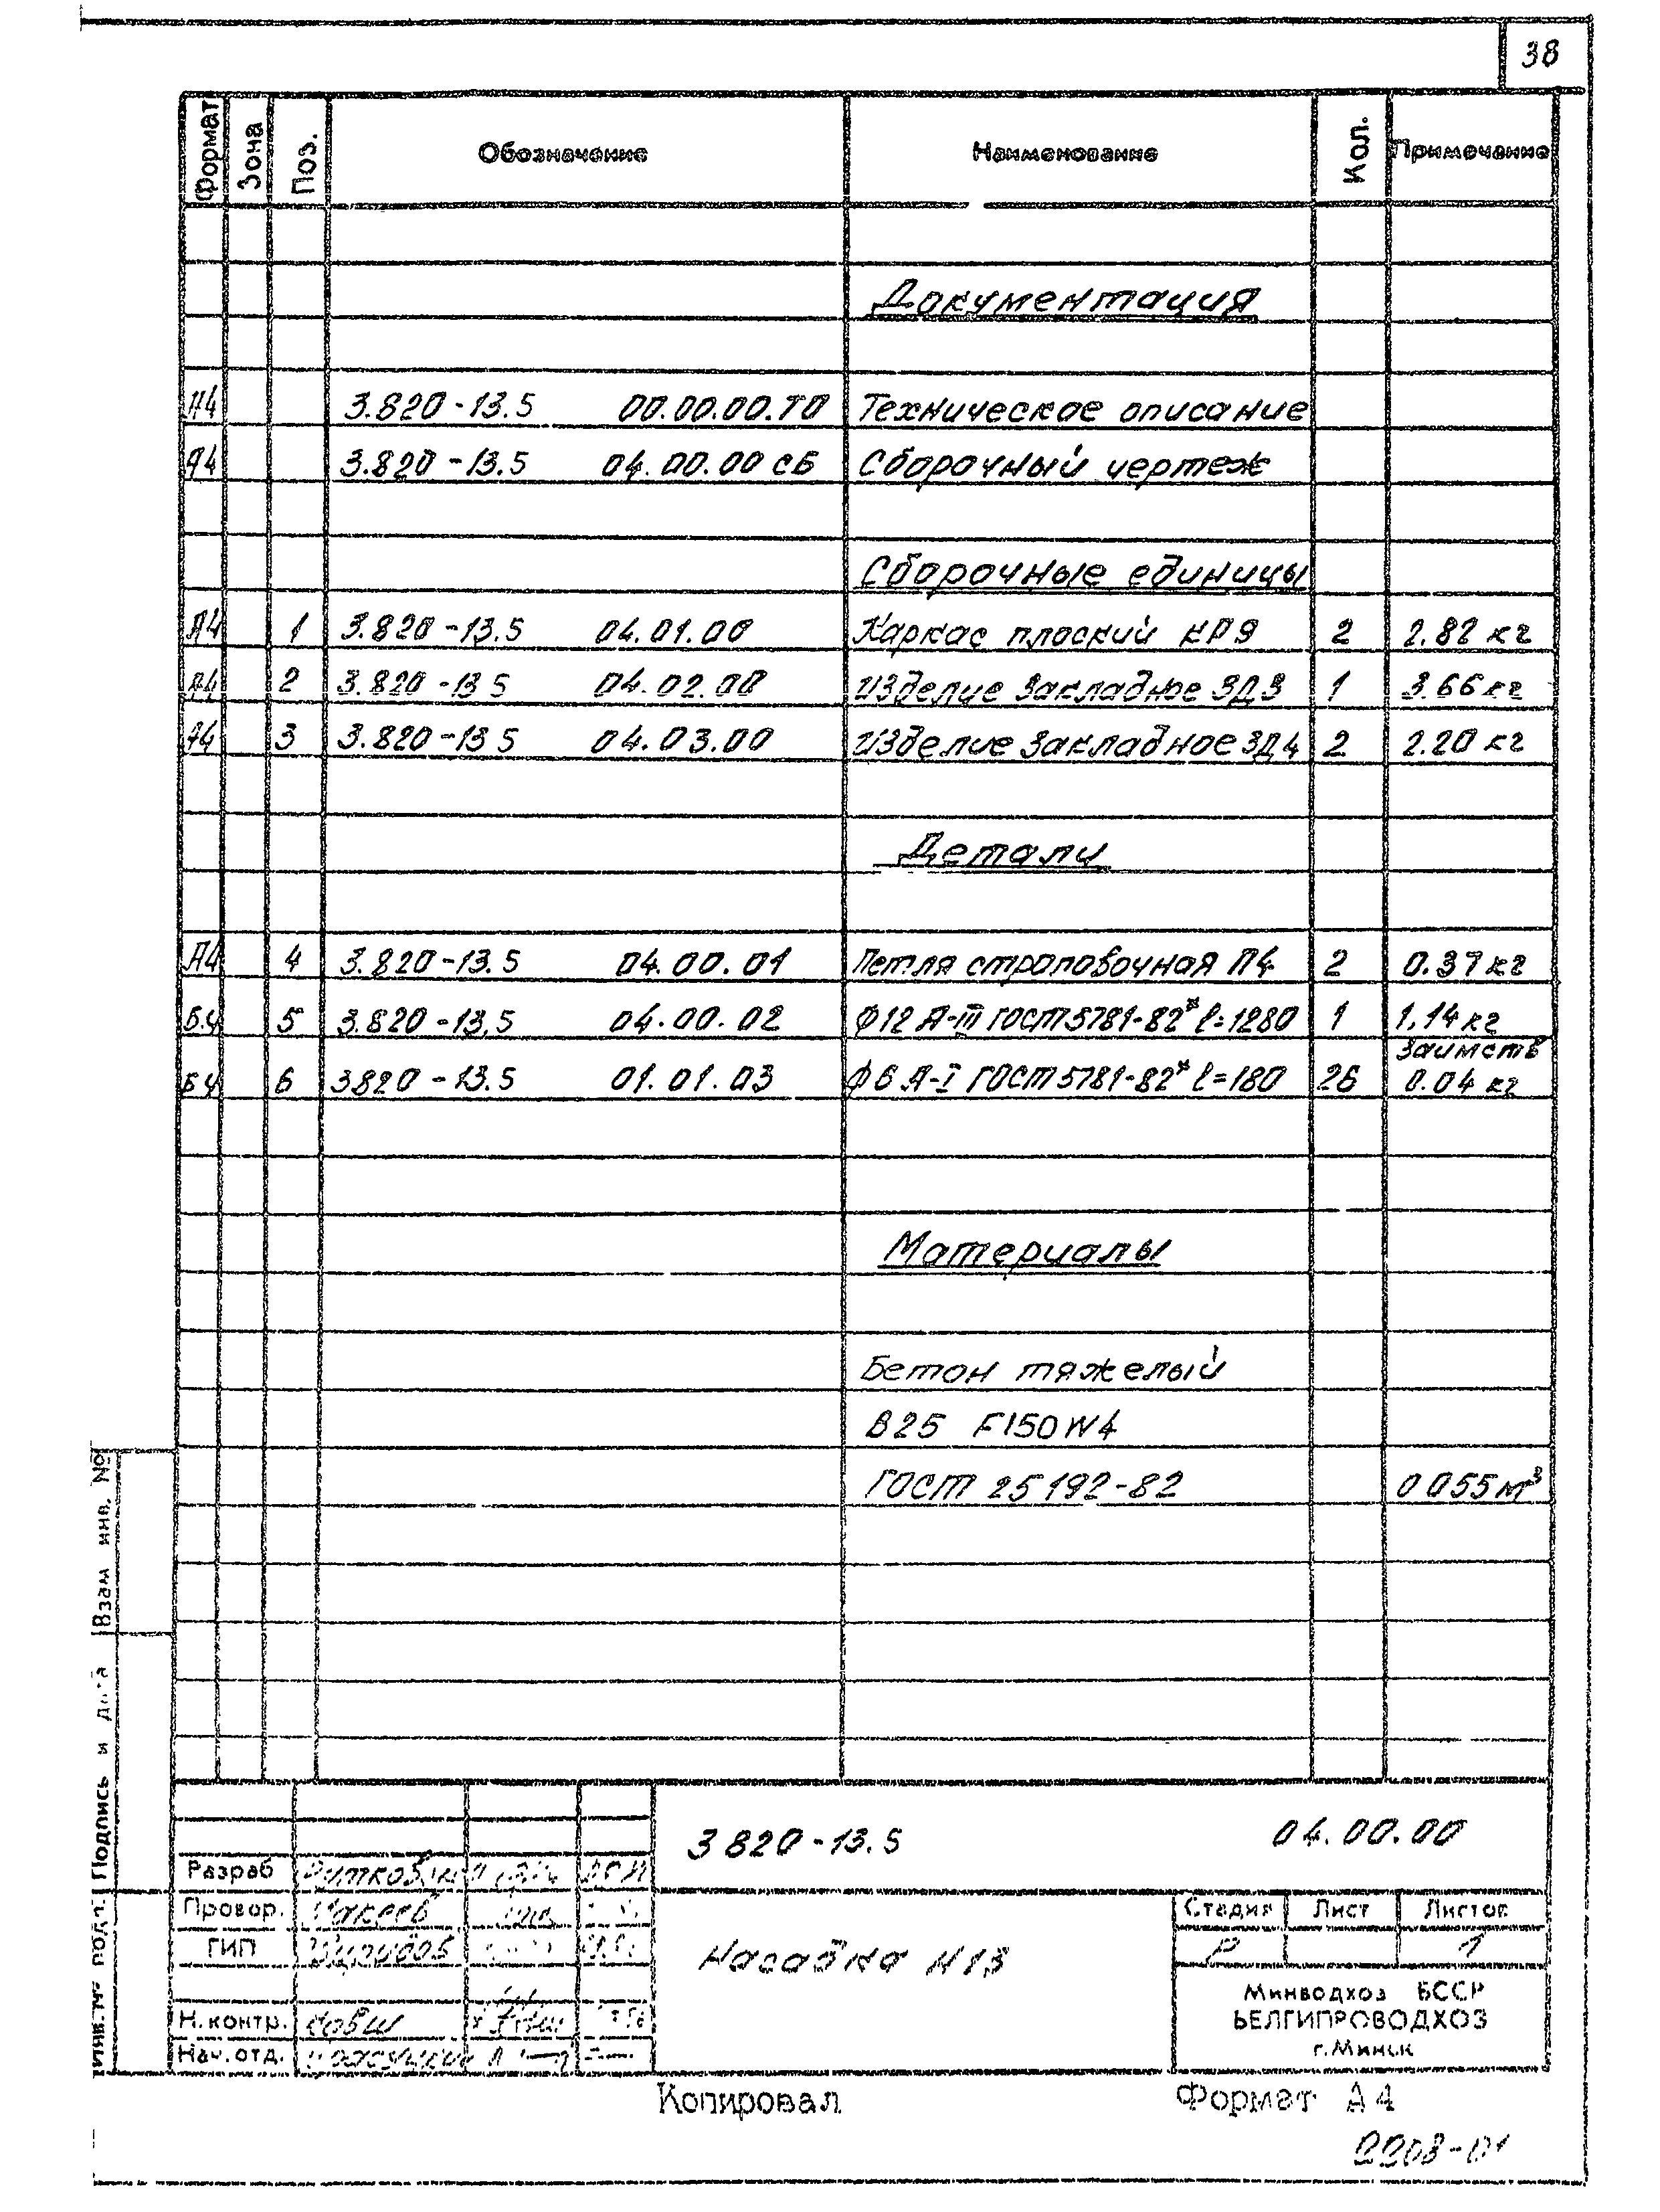 38
Формат Зона Поз. Обозначение Наименование Кол. Примечание
Документация
А4 3.820-13.5 00.00.00.ТО Техническое описание
А4 3.820-13.5 04.00.00 СБ Сборочный чертеж
Сборочные единицы
А4 1 3.820-13.5 04.01.00 Каркас плоский КР9 2 2.82 кг
А4 2 3.820-13 5 04.02.00 Изделие закладное ЗД3 1 3.66 кг
А4 3 3.820-13 5 04.03.00 Изделие закладное ЗД4 2 2.20 кг
Детали
А4 4 3.820-13.5 04.00.01 Петля строповочная П4 2 0.37 кг
Б.ч 5 3.820-13.5 04.00.02 Ф12 А-III ГОСТ 5781-82* l=1280 1 1.14 кг
Заимств
Б ч 6 3820-13.5 01.01.03 Ф6 А-I ГОСТ 5781-82* l=180 26 0.04 кг
Материалы
Бетон тяжелый
В25 F150 W4
ГОСТ 25192-82 0 055 м³
Взам инв. №
Подпись и дата
Инв. № подл.
3 820-13.5 04.00.00
Разраб
Провер. Макеев
ГИП
Н. контр. Ковш
Нач. отд.
Насадка Н13
Стадия Лист Листов
Р 1
Минводхоз БССР
БЕЛГИПРОВОДХОЗ
г. Минск
Копировал Формат А4
2208-01